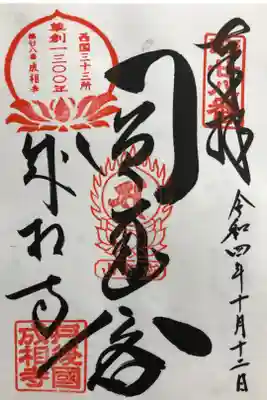 奉拝
令和四年十月十二日
西国三十三所
草創一三〇〇年
第廿八番 成相寺
成相寺
丹後國
成相寺